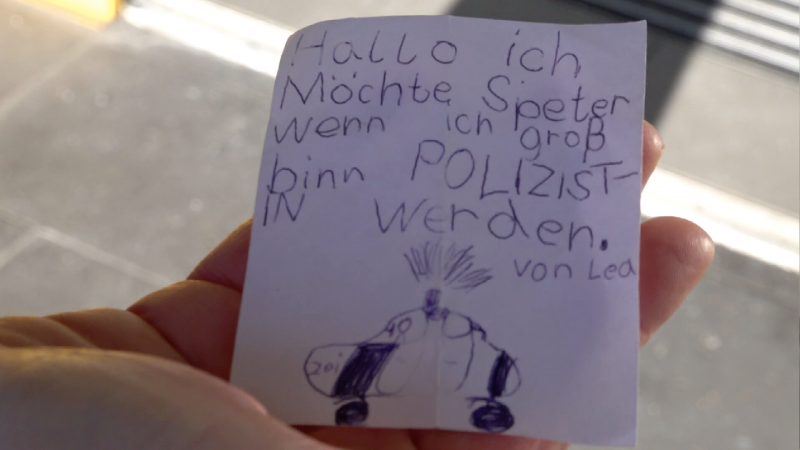 Hallo ich
Möchte Speter
wenn ich groß
binn POLIZIST-
IN werden.
von Lea